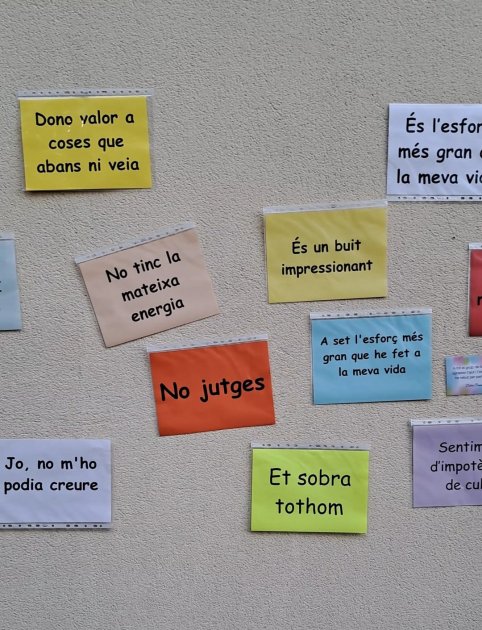 Dono valor a
coses que
abans ni veia
És l'esfor
més gran
la meva vi
No tinc la
mateixa
energia
És un buit
impressionant
A set l'esforç més
gran que he fet a
la meva vida
No jutges
Jo, no m'ho
podia creure
Et sobra
tothom
Sentim
d'impotè
de cul